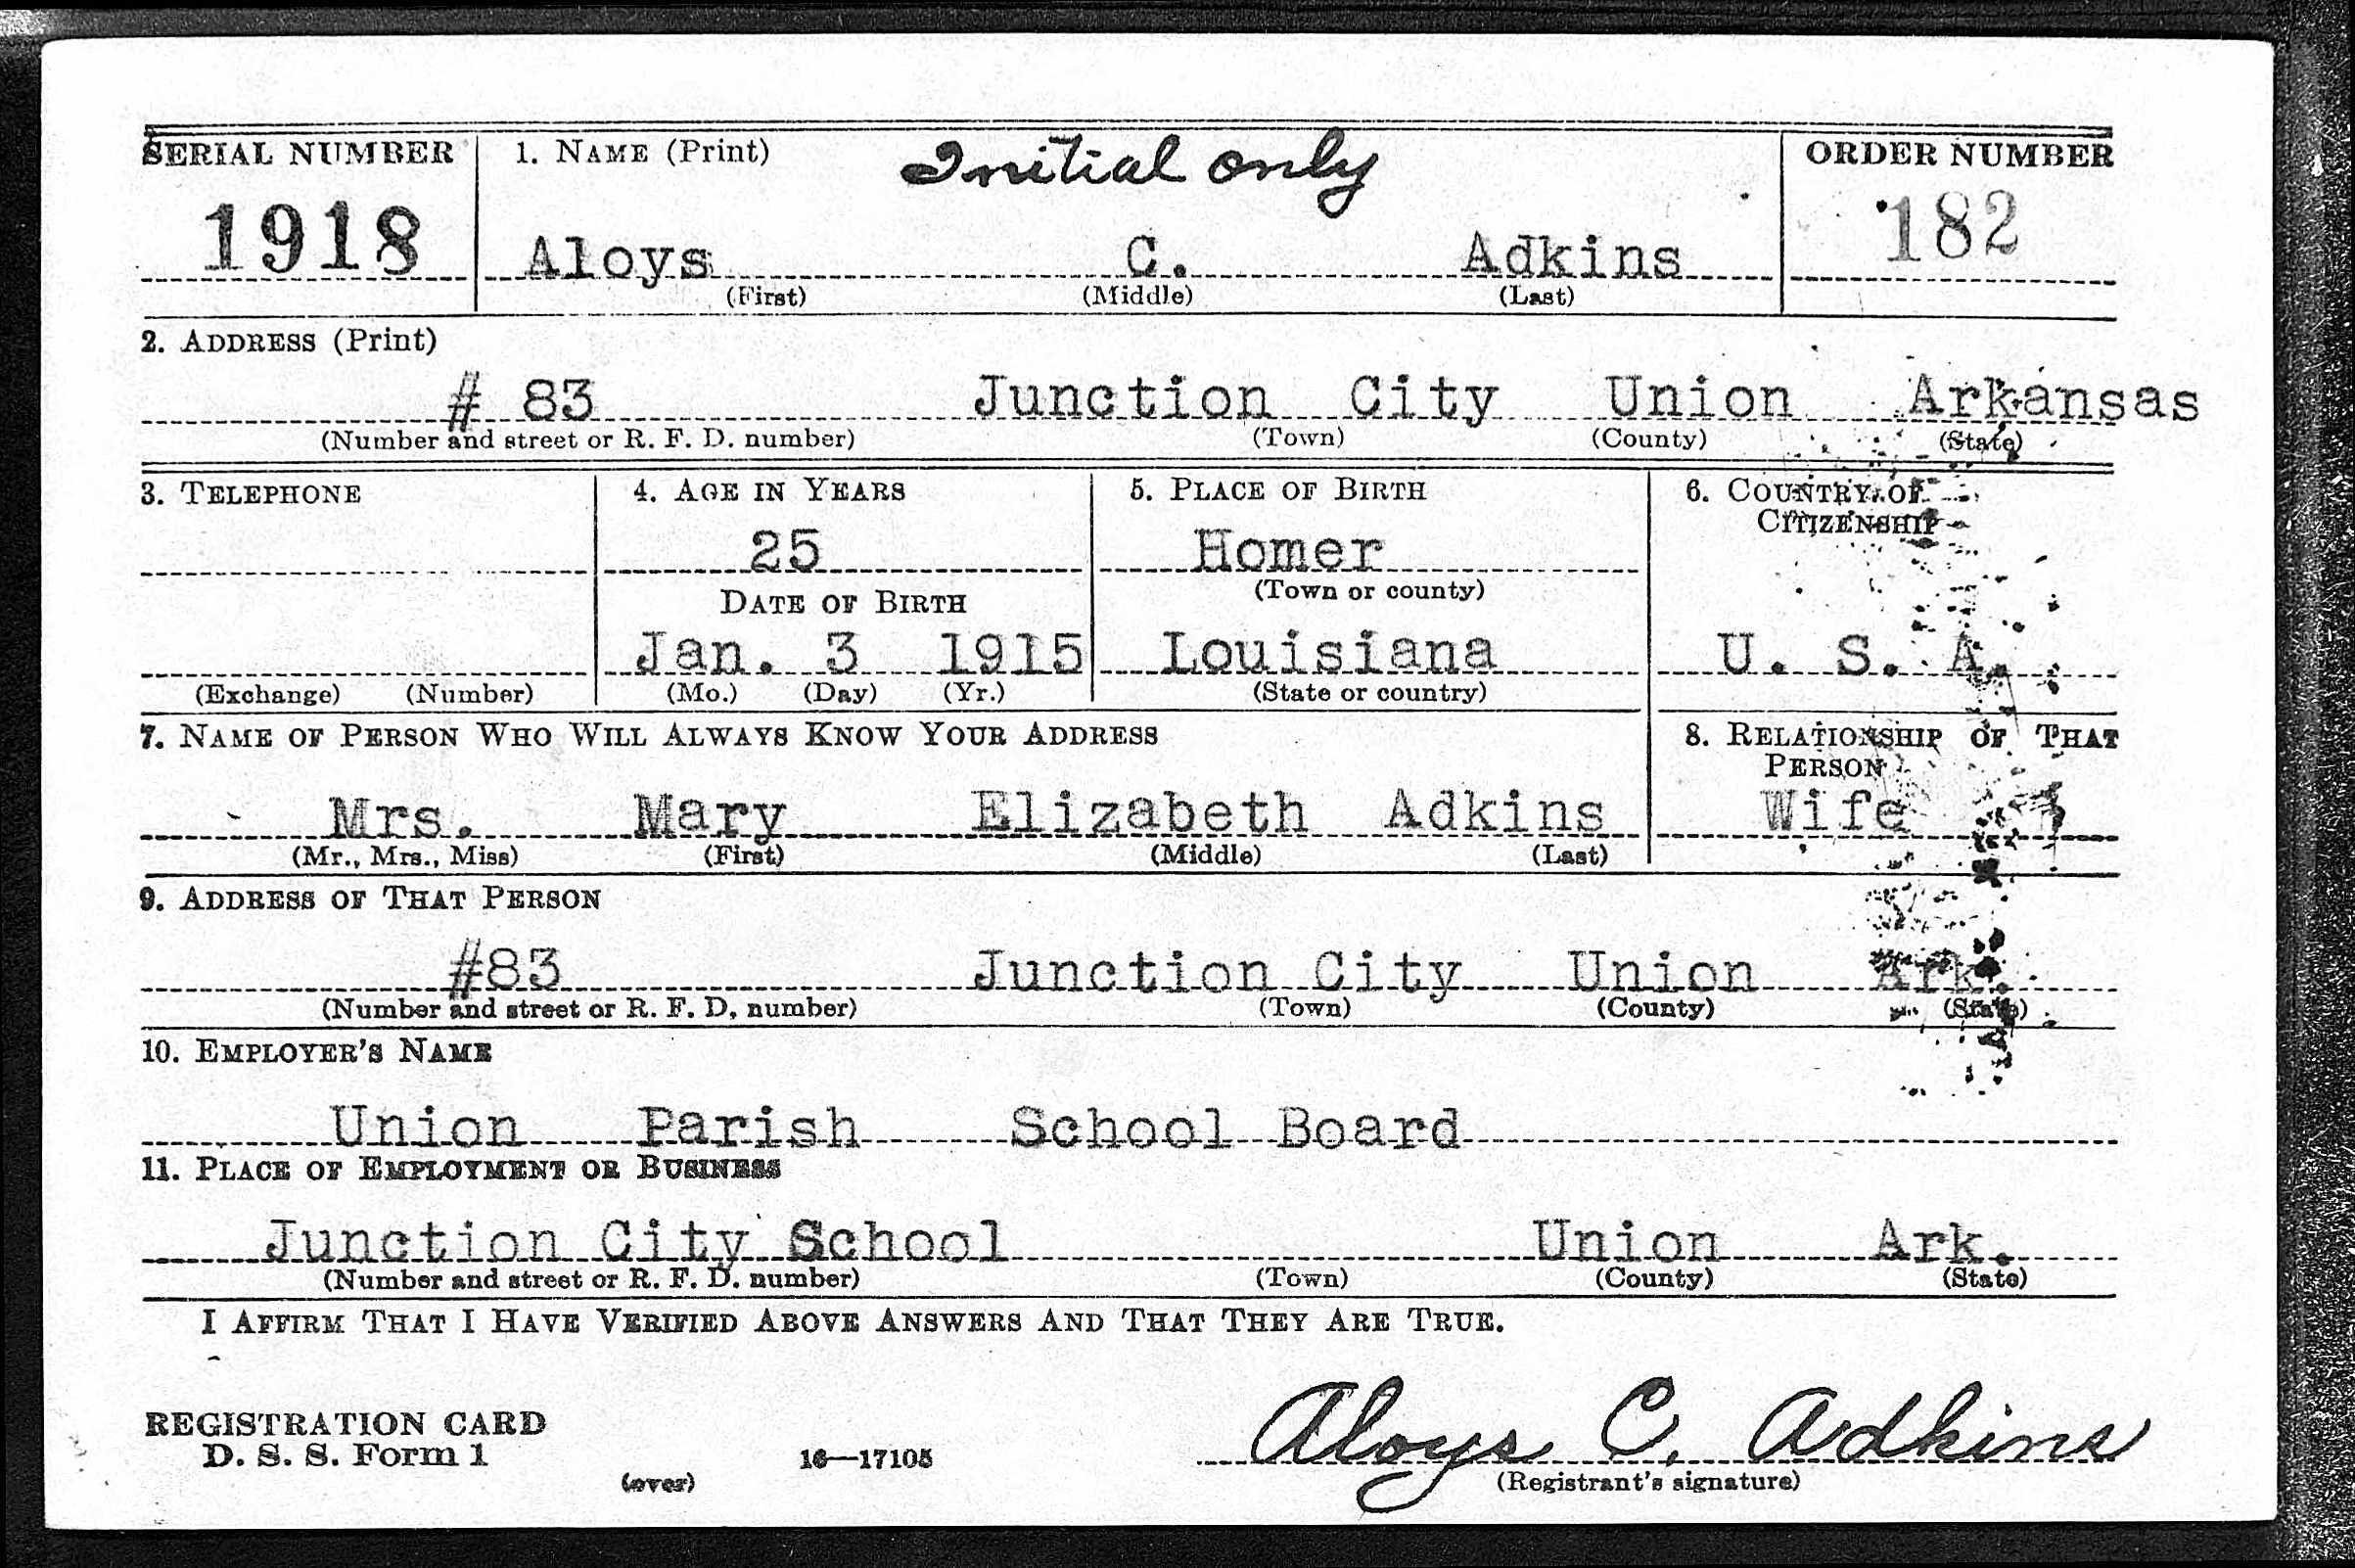 SERIAL NUMBER 1. NAME (Print) Initial only ORDER NUMBER
1918 Aloys C. Adkins 182
(First) (Middle) (Last)
2. ADDRESS (Print)
# 83 Junction City Union Arkansas
(Number and street or R. F. D. number) (Town) (County) (State)
3. TELEPHONE 4. AGE IN YEARS 5. PLACE OF BIRTH 6. COUNTRY OF
CITIZENSHIP
25 Homer
(Town or county)
DATE OF BIRTH
Jan. 3 1915 Louisiana U. S. A.
(Exchange) (Number) (Mo.) (Day) (Yr.) (State or country)
7. NAME OF PERSON WHO WILL ALWAYS KNOW YOUR ADDRESS 8. RELATIONSHIP OF THAT
PERSON
Mrs. Mary Elizabeth Adkins Wife
(Mr., Mrs., Miss) (First) (Middle) (Last)
9. ADDRESS OF THAT PERSON
#83 Junction City Union Ark.
(Number and street or R. F. D. number) (Town) (County) (State)
10. EMPLOYER'S NAME
Union Parish School Board
11. PLACE OF EMPLOYMENT OR BUSINESS
Junction City School Union Ark.
(Number and street or R. F. D. number) (Town) (County) (State)
I AFFIRM THAT I HAVE VERIFIED ABOVE ANSWERS AND THAT THEY ARE TRUE.
REGISTRATION CARD
D. S. S. Form 1 16—17105 Aloys C. Adkins
(over) (Registrant's signature)